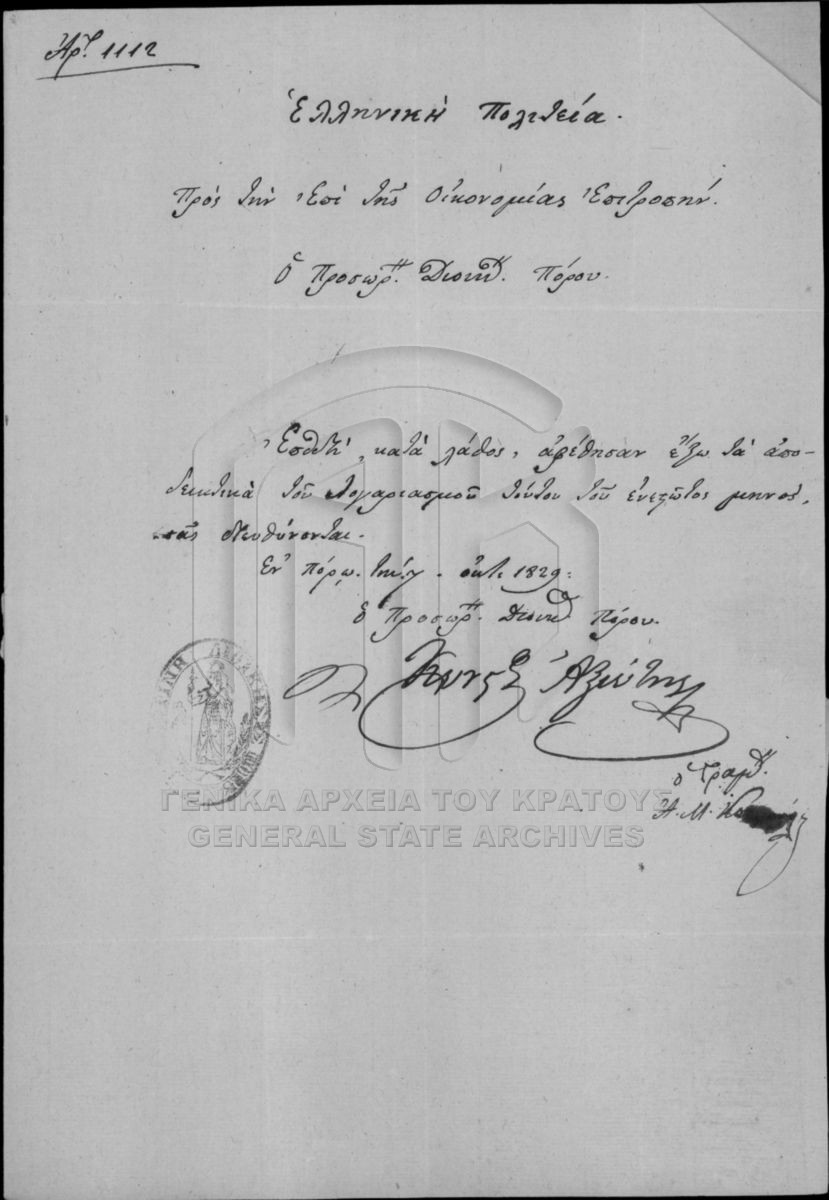 Ἀρ. 1112
Ἑλληνικὴ Πολιτεία.
Πρὸς τὴν Ἐπὶ τῆς Οἰκονομίας Ἐπιτροπήν.
Ὁ Προσωρ. Διοικ. Πόρου.
Ἐπειδὴ, κατὰ λάθος, ἀφέθησαν ἔξω τὰ ἀπο-
δεικτικὰ τοῦ λογαριασμοῦ τούτου τοῦ ἐνεστῶτος μηνός,
σᾶς διευθύνονται.
Ἐν Πόρῳ. τὴν 7. ὀκτ. 1829.
Ὁ Προσωρ. Διοικ. Πόρου.
Ἀξιώτης
ὁ Γραμ.
Α. Μ.
ΓΕΝΙΚΑ ΑΡΧΕΙΑ ΤΟΥ ΚΡΑΤΟΥΣ
GENERAL STATE ARCHIVES